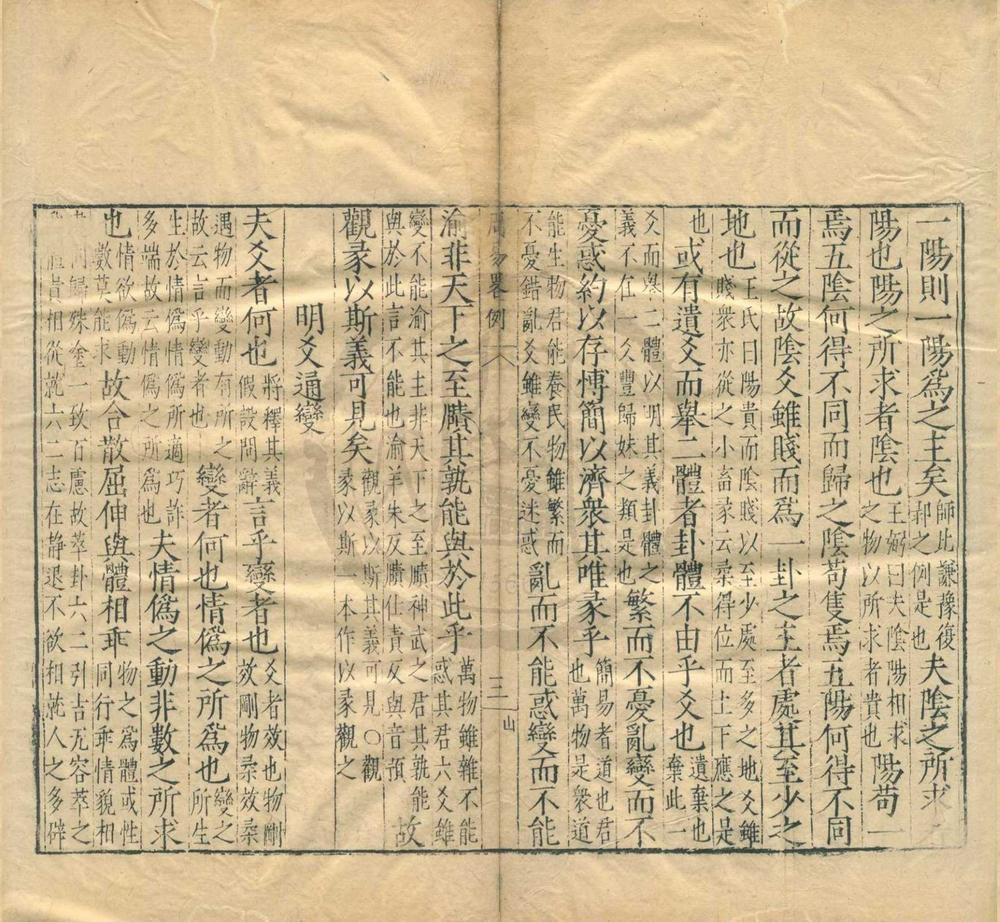 一陽則一陽爲之主矣
師比謙豫復
剥之例是也
夫陰之所求
陽也陽之所求者陰也
王弼曰夫陰陽相求
之物以所求者貴也
陽苟一
焉五陰何得不同而歸之陰苟隻焉五陽何得不同
而從之故陰爻雖賤而爲一卦之主者處其至少之
地也
王氏曰陽貴而陰賤以至少處至多之地爻雖
賤衆亦從之小畜彖云柔得位而上下應之是
也
或有遺爻而舉二體者卦體不由乎爻也
遺棄也
棄此一
爻而舉二體以明其義卦體之
義不在一爻豐歸妹之類是也
繁而不憂亂變而不
憂惑約以存博簡以濟衆其唯彖乎
簡易者道也君
也萬物是衆道
能生物君能養民物雖繁而
不憂錯亂爻雖變不憂迷惑
亂而不能惑變而不能
周易畧例
三
山
渝非天下之至賾其孰能與於此乎
萬物雖雜不能
惑其君六爻雖
變不能渝其主非天下之至賾神武之君其孰能
與於此言不能也渝羊朱反賾仕責反與音預
故
觀彖以斯義可見矣
觀彖以斯其義可見○觀
彖以斯一本作以彖觀之
明爻通變
夫爻者何也
將釋其義
假設問辭
言乎變者也
爻者效也物剛
效剛物柔效柔
遇物而變動有所之
故云言乎變者也
變者何也情僞之所爲也
變之
所生
生於情僞情僞所適巧詐
多端故云情僞之所爲也
夫情僞之動非數之所求
也
情欲僞動
數莫能求
故合散屈伸與體相乖
物之爲體或性
同行乖情貌相
同歸殊塗一致百慮故萃卦六二引吉无咎萃之
體貴相從就六二志在静退不欲相就人之多辟